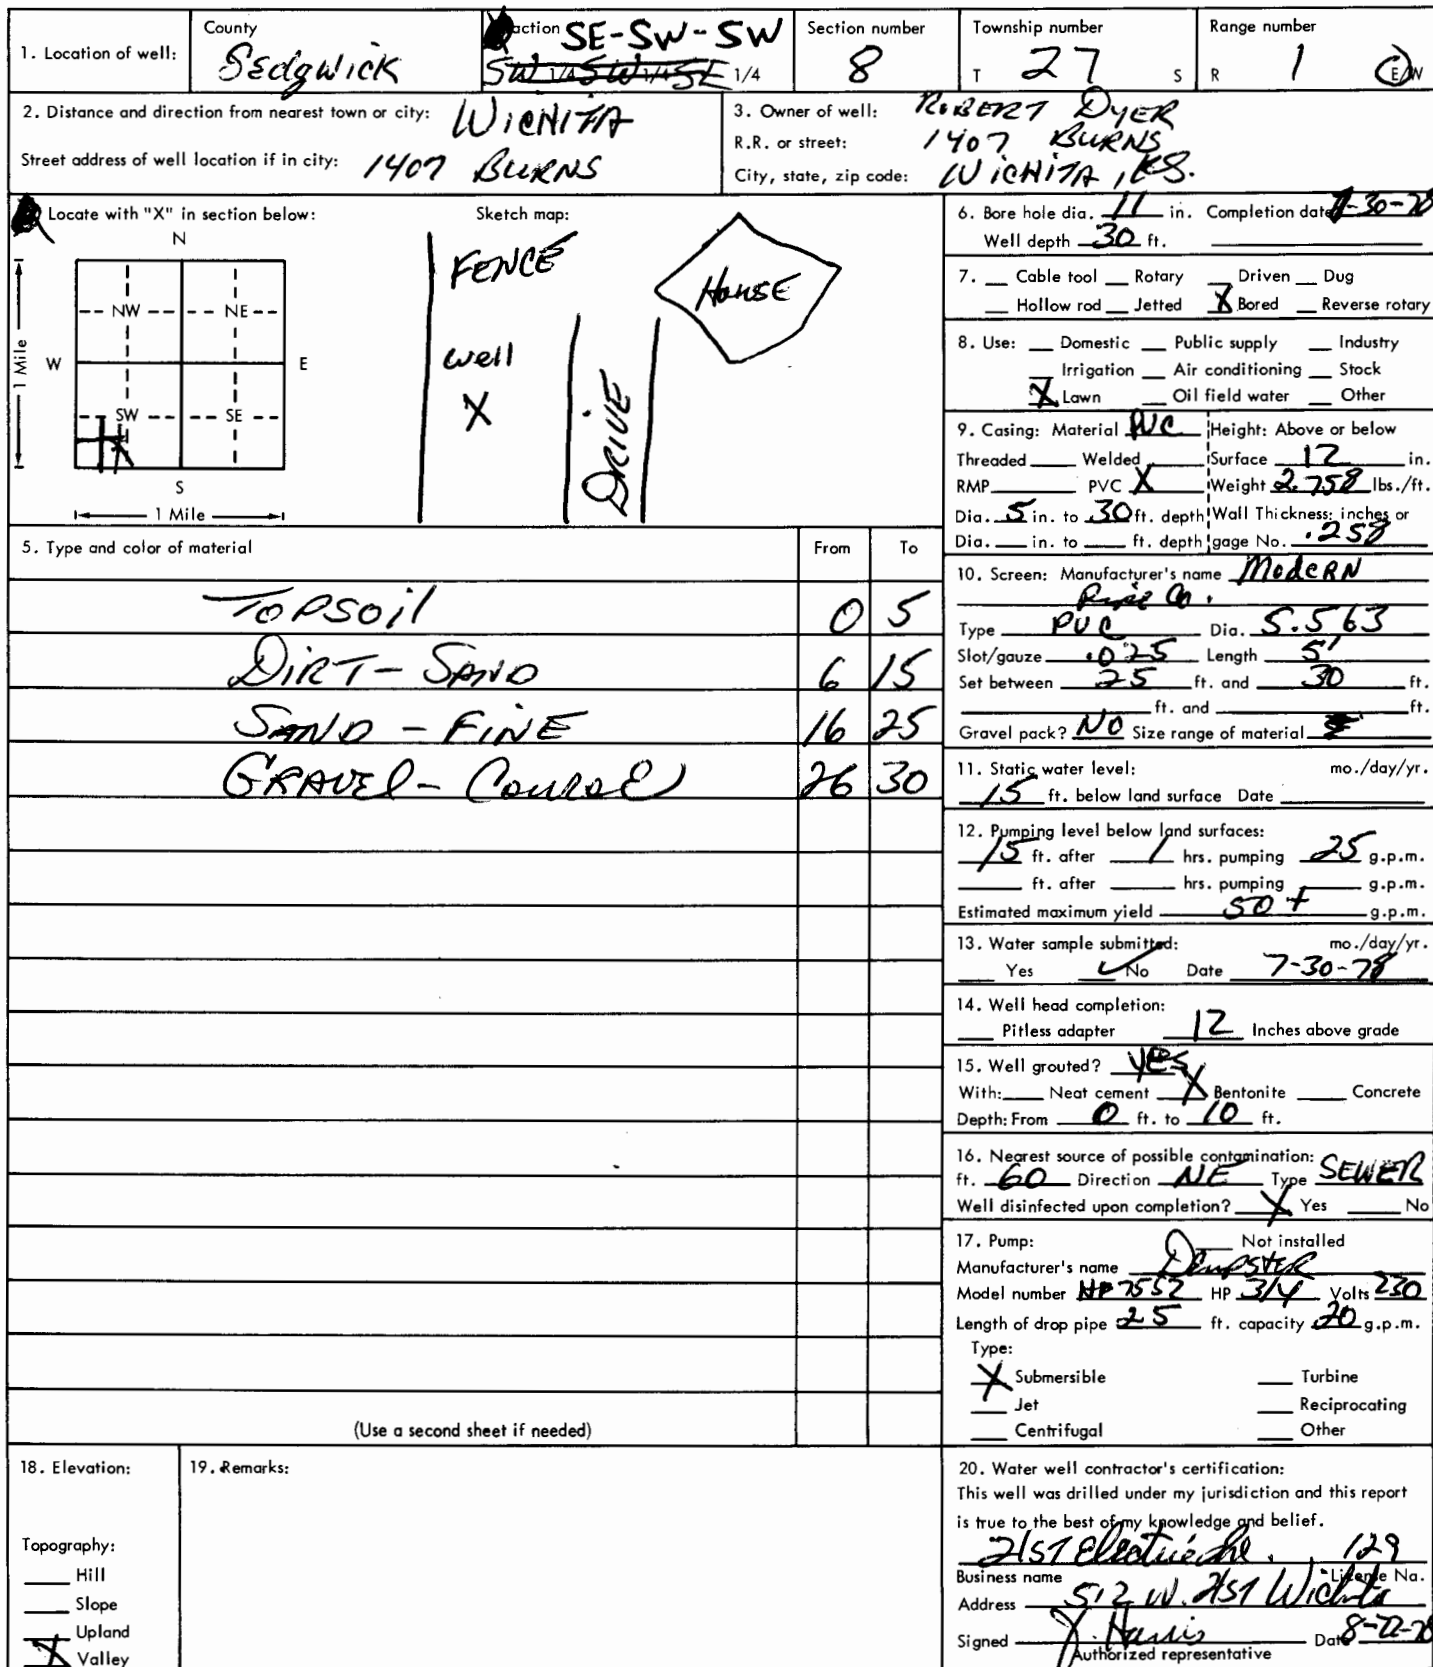 1. Location of well: County Sedgwick Fraction SE-SW-SW SW 1/4 SW 1/4 SE 1/4 Section number 8 Township number T 27 S Range number R 1 E/W
2. Distance and direction from nearest town or city: WICHITA
Street address of well location if in city: 1407 BURNS
3. Owner of well: ROBERT DYER
R.R. or street: 1407 BURNS
City, state, zip code: WICHITA, KS.
Locate with "X" in section below:
N
NW NE
W E
SW SE
S
1 Mile
1 Mile
Sketch map:
FENCE
HOUSE
well
X
DRIVE
5. Type and color of material From To
TOPSOIL 0 5
DIRT-SAND 6 15
SAND - FINE 16 25
GRAVEL - COURSE 26 30
(Use a second sheet if needed)
6. Bore hole dia. 11 in. Completion date 7-30-78
Well depth 30 ft.
7. Cable tool Rotary Driven Dug
Hollow rod Jetted X Bored Reverse rotary
8. Use: Domestic Public supply Industry
Irrigation Air conditioning Stock
X Lawn Oil field water Other
9. Casing: Material PVC Height: Above or below
Threaded Welded Surface 12 in.
RMP PVC X Weight 2.758 lbs./ft.
Dia. 5 in. to 30 ft. depth Wall Thickness: inches or
Dia. in. to ft. depth gage No. .258
10. Screen: Manufacturer's name MODERN
Pipe Co.
Type PVC Dia. 5.563
Slot/gauze .025 Length 5'
Set between 25 ft. and 30 ft.
ft. and ft.
Gravel pack? NO Size range of material
11. Static water level: mo./day/yr.
15 ft. below land surface Date
12. Pumping level below land surfaces:
15 ft. after 1 hrs. pumping 25 g.p.m.
ft. after hrs. pumping g.p.m.
Estimated maximum yield 50+ g.p.m.
13. Water sample submitted: mo./day/yr.
Yes ✓ No Date 7-30-78
14. Well head completion:
Pitless adapter 12 Inches above grade
15. Well grouted? yes
With: Neat cement X Bentonite Concrete
Depth: From 0 ft. to 10 ft.
16. Nearest source of possible contamination:
ft. 60 Direction NE Type SEWER
Well disinfected upon completion? X Yes No
17. Pump: Not installed
Manufacturer's name Dempster
Model number HP 7552 HP 3/4 Volts 230
Length of drop pipe 25 ft. capacity 20 g.p.m.
Type:
X Submersible Turbine
Jet Reciprocating
Centrifugal Other
18. Elevation:
Topography:
Hill
Slope
Upland
X Valley
19. Remarks:
20. Water well contractor's certification:
This well was drilled under my jurisdiction and this report
is true to the best of my knowledge and belief.
21st Electric 129
Business name License No.
Address 512 W. 21st Wichita
Signed J. Harris Date 8-22-78
Authorized representative